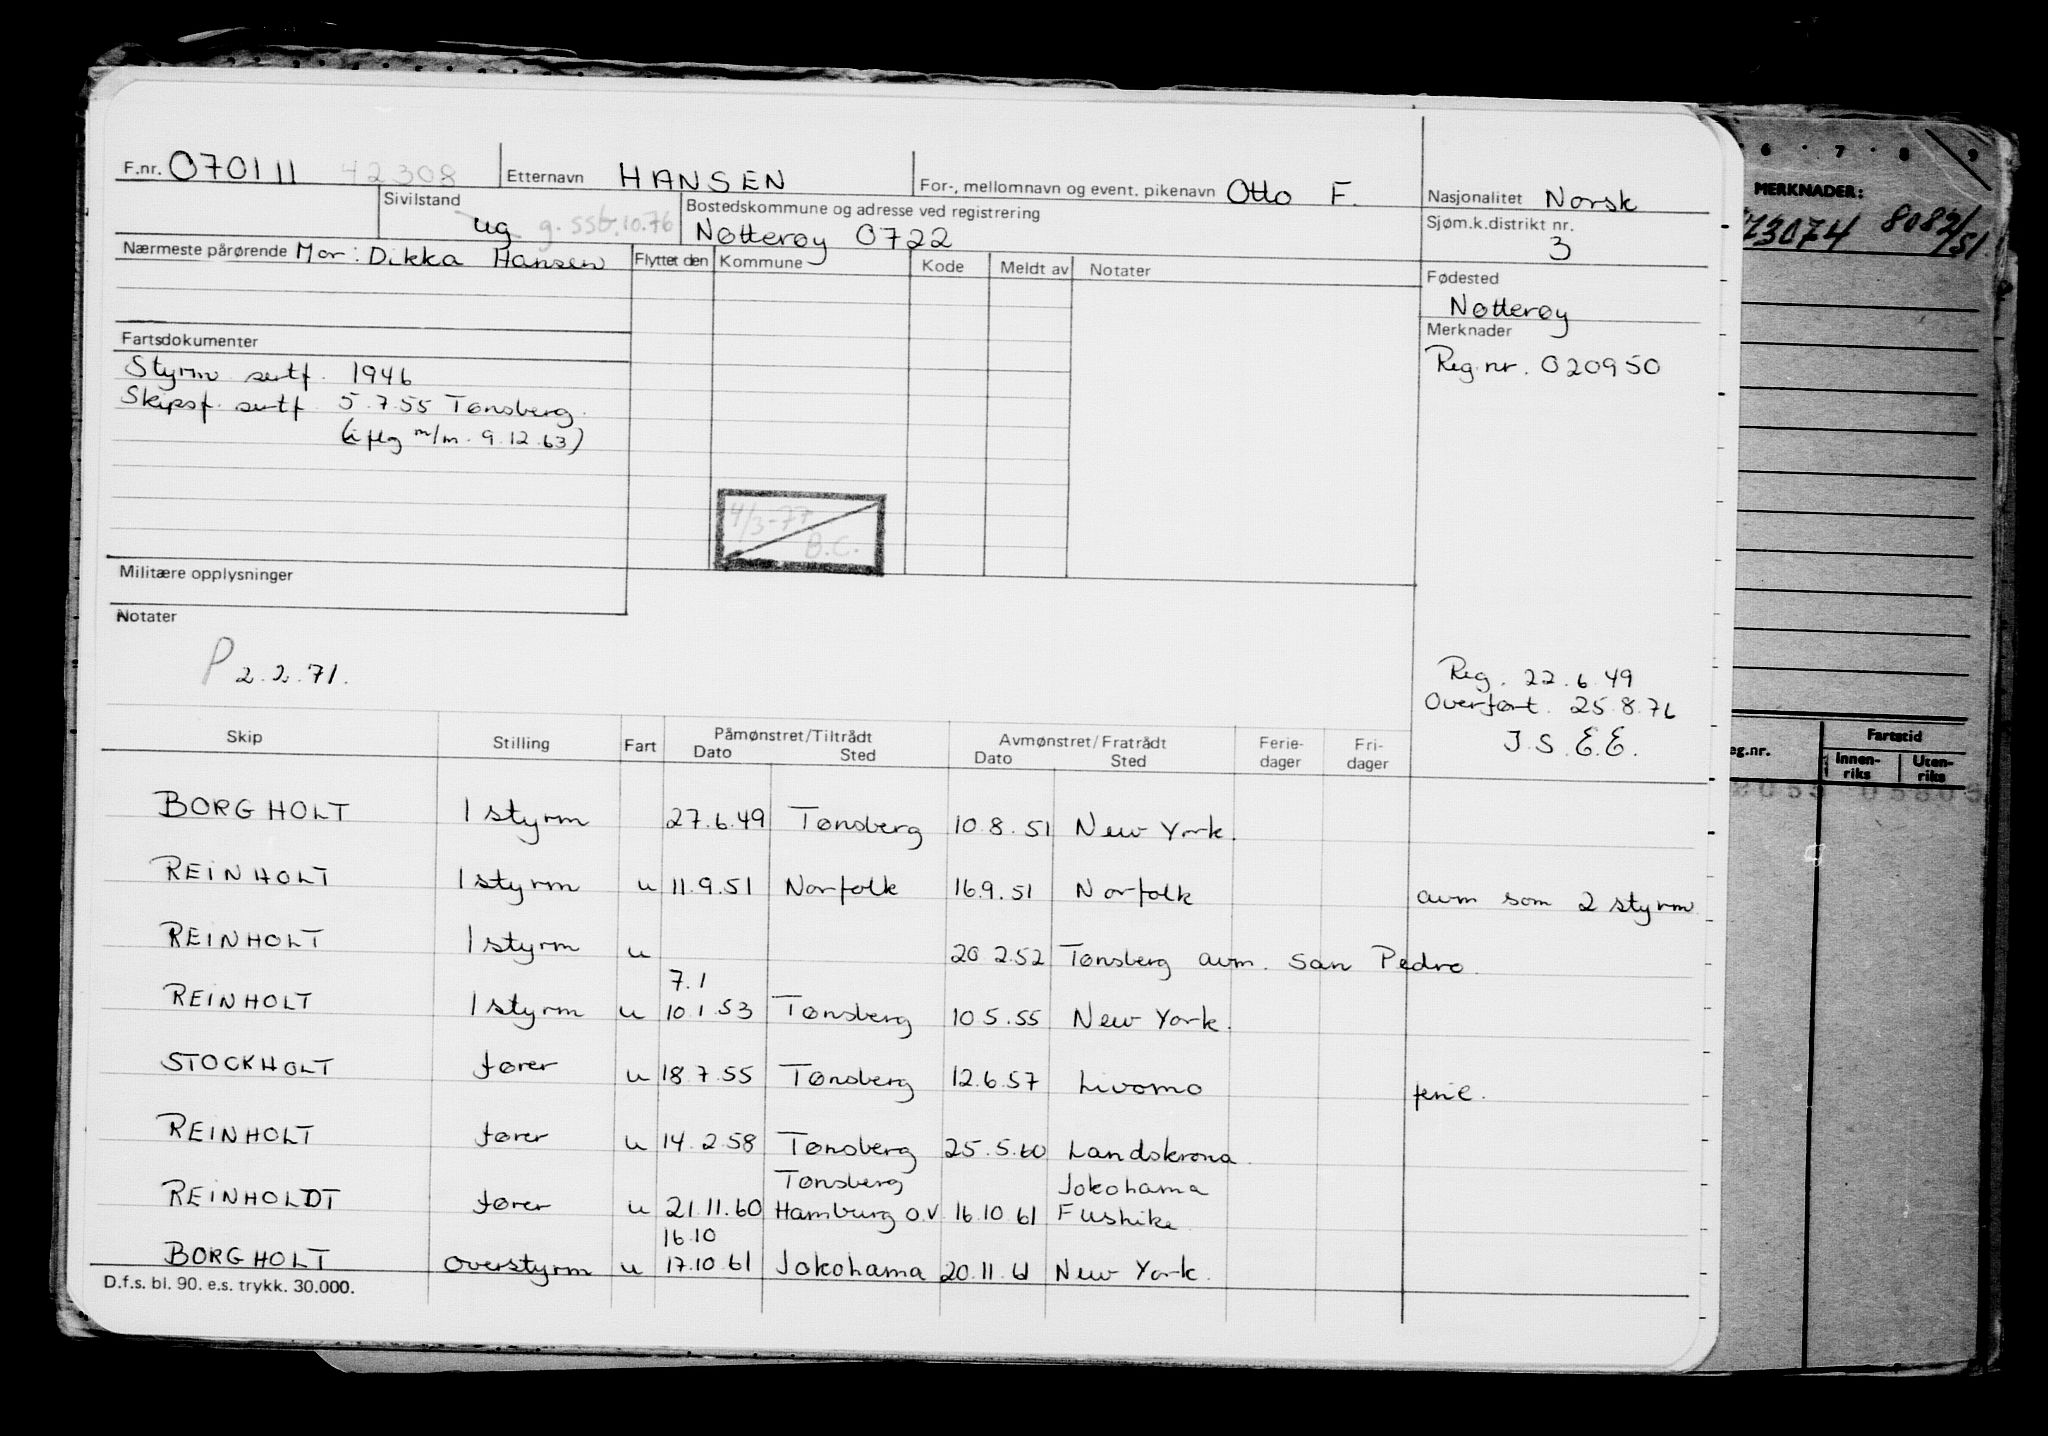 F.nr. 070111 42308 Etternavn HANSEN For-, mellomnavn og event. pikenavn Otto F. Nasjonalitet Norsk
Sivilstand ug g. ssb.10.76 Bostedskommune og adresse ved registrering Nøtterøy 0722 Sjøm.k.distrikt nr. 3
Nærmeste pårørende Mor: Dikka Hansen Flyttet den Kommune Kode Meldt av Notater
Fødested
Nøtterøy
Merknader
Reg.nr. 020950
Fartsdokumenter
Styrm sertf. 1946
Skipsf. sertf 5.7.55 Tønsberg.
(iflg m/m. 9.12.63)
4/3-77
B.C.
Militære opplysninger
Notater
P 2.2.71.
Reg. 22.6.49
Overført. 25.8.76
J.S. E.E.
Skip Stilling Fart Påmønstret/Tiltrådt Avmønstret/Fratrådt Ferie- Fri-
Dato Sted Dato Sted dager dager
BORGHOLT 1 styrm 27.6.49 Tønsberg 10.8.51 New York.
REINHOLT 1 styrm u 11.9.51 Norfolk 16.9.51 Norfolk avm som 2 styrm
REINHOLT 1 styrm u 20.2.52 Tønsberg avm. San Pedro.
7.1
REINHOLT 1 styrm u 10.1.53 Tønsberg 10.5.55 New York.
STOCKHOLT fører u 18.7.55 Tønsberg 12.6.57 Livorno ferie.
REINHOLT fører u 14.2.58 Tønsberg 25.5.60 Landskrona.
Tønsberg Jokohama
REINHOLDT fører u 21.11.60 Hamburg o.v 16.10 61 Fushike
16.10
BORGHOLT Overstyrm u 17.10.61 Jokohama 20.11.61 New York.
D.f.s. bl. 90. e.s. trykk. 30.000.
6 7 8 9
MERKNADER:
73074 8082/51
eg.nr. Fartstid
Innen-riks Uten-riks